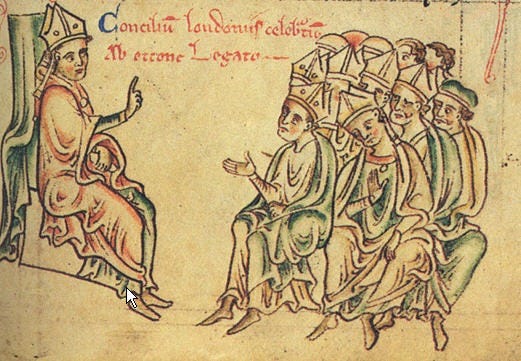 Conciliū londoniis celebᵃtū
Ab ottone Legato